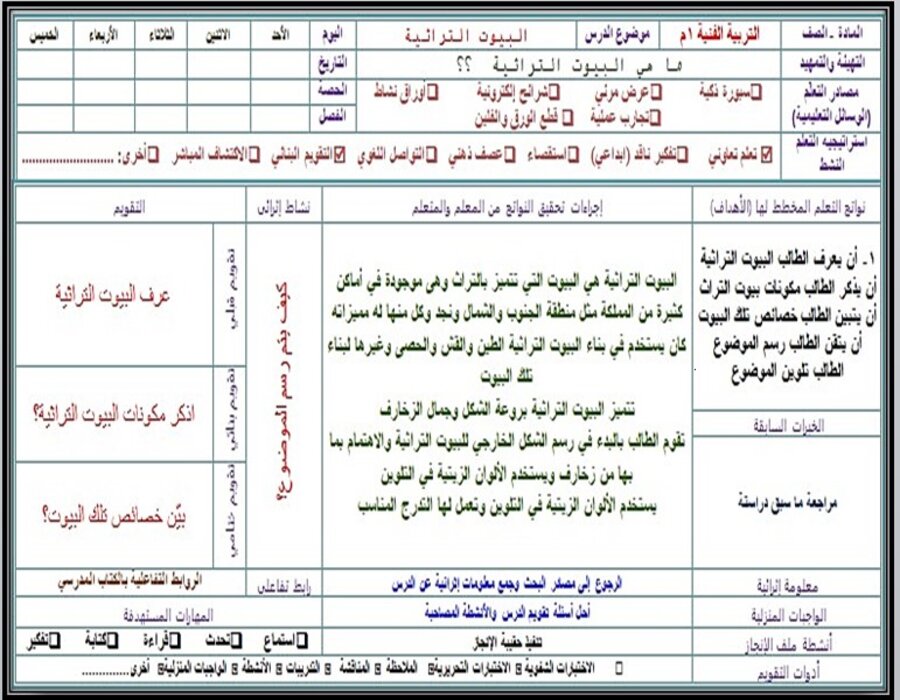 المادة ـ الصف التربية الفنية ١م موضوع الدرس البيوت التراثية اليوم الأحد الاثنين الثلاثاء الأربعاء الخميس
التهيئة والتمهيد ما هي البيوت التراثية ؟؟ التاريخ
مصادر التعلم (الوسائل التعليمية) □سبورة ذكية □عرض مرئي □شرائح إلكترونية □أوراق نشاط الحصة
□تجارب عملية □ قطع الورق والفلين الفصل
استراتيجية التعلم النشط ☑ تعلم تعاوني □تفكير ناقد (ابداعي) □استقصاء □عصف ذهني □التواصل اللغوي ☑التقويم البنائي □الاكتشاف المباشر □أخرى: ........................
نواتج التعلم المخطط لها (الأهداف) إجراءات تحقيق النواتج من المعلم والمتعلم نشاط إثرائى التقويم
١ـ أن يعرف الطالب البيوت التراثية
أن يذكر الطالب مكونات بيوت التراث
أن يتبين الطالب خصائص تلك البيوت
أن يتقن الطالب رسم الموضوع
الطالب تلوين الموضوع
الخبرات السابقة
مراجعة ما سبق دراستة
البيوت التراثية هي البيوت التي تتميز بالتراث وهى موجودة في أماكن
كثيرة من المملكة مثل منطقة الجنوب والشمال ونجد وكل منها له مميزاته
كان يستخدم في بناء البيوت التراثية الطين والقش والحصى وغيرها لبناء
تلك البيوت
تتميز البيوت التراثية بروعة الشكل وجمال الزخارف
تقوم الطالب بالبدء في رسم الشكل الخارجي للبيوت التراثية والاهتمام بما
بها من زخارف ويستخدم الألوان الزيتية في التلوين
يستخدم الألوان الزيتية في التلوين وتعمل لها التدرج المناسب
كيف يتم رسم الموضوع؟
تقويم قبلي
عرف البيوت التراثية
تقويم بنائي
اذكر مكونات البيوت التراثية؟
تقويم ختامي
بيّن خصائص تلك البيوت؟
معلومة إثرائية الرجوع إلى مصدر البحث وجمع معلومات إثرائية عن الدرس رابط تفاعلى الروابط التفاعلية بالكتاب المدرسي
الواجبات المنزلية أحل أسئلة تقويم الدرس والأنشطة المصاحبة المهارات المستهدفة
أنشطة ملف الإنجاز تنفيذ حقيبة الإنجاز □استماع □تحدث □قراءة □كتابة □تفكير
أدوات التقويم □ الاختبارات الشفوية الاختبارات التحريرية الملاحظة المناقشة التدريبات الأنشطة الواجبات المنزلية أخرى..............